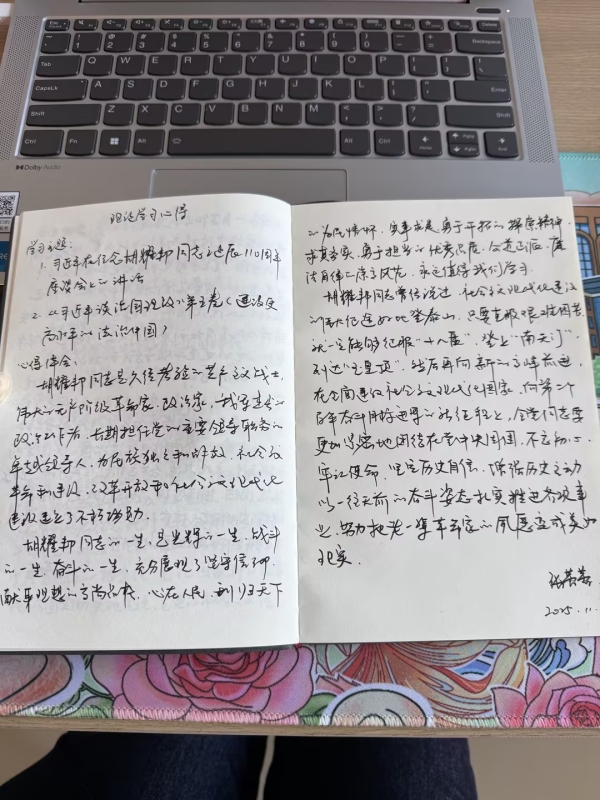 理论学习心得
学习主题:
1. 习近平在纪念胡耀邦同志诞辰110周年
座谈会上的讲话
2. 《习近平谈治国理政》第五卷(建设更
高水平的法治中国)
心得体会:
胡耀邦同志是久经考验的共产主义战士,
伟大的无产阶级革命家、政治家,我军杰出的
政治工作者,长期担任党的主要领导职务的
卓越领导人,为民族独立和解放、社会主义
革命和建设、改革开放和社会主义现代化
建设建立了不朽功勋。
胡耀邦同志的一生,是光辉的一生、战斗
的一生、奋斗的一生,充分展现了坚守信仰、
献身理想的高尚品格,心在人民、利归天下
的为民情怀,实事求是、勇于开拓的探索精神,
求真务实、勇于担当的优秀品质,公道正派、廉
洁自律的崇高风范,永远值得我们学习。
胡耀邦同志曾经说过,社会主义现代化建设
的万里征途如比登泰山,只要克服艰难困苦,
就一定能够征服“十八盘”,登上“南天门”,
到达“玉皇顶”,然后再向新的高峰前进,
在全面建设社会主义现代化国家、向第二个
百年奋斗目标进军的新征程上,全党同志要
更加紧密地团结在党中央周围,不忘初心、
牢记使命,坚定历史自信,增强历史主动,
以一往无前的奋斗姿态扎实推进各项事
业,努力把老一辈革命家的夙愿变成美好
现实。
2025.11.
Dolby Audio
Tab
CapsLk
Shift
Ctrl
Fn
Alt
Alt
Ctrl
Backspace
Enter
Shift
Q W E R T Y U I O P
A S D F G H J K L
Z X C V B N M